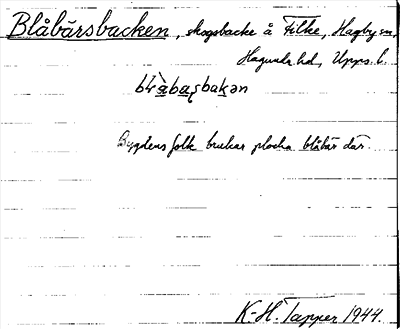 Blåbärsbacken, skogsbacke å Filke, Hagby sn,
Hagunda hd, Upps. l.
Bygdens folk brukar plocka blåbär där.
K-H. Tapper 1944.